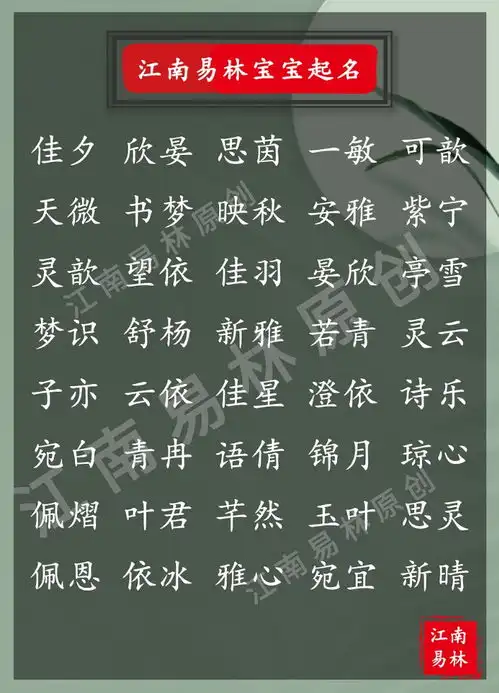 江南易林宝宝起名
佳夕 欣晏 思茵 一敏 可歆
天微 书梦 映秋 安雅 紫宁
灵歆 望依 佳羽 晏欣 亭雪
梦识 舒杨 新雅 若青 灵云
子亦 云依 佳星 澄依 诗乐
宛白 青冉 语倩 锦月 琼心
佩熠 叶君 芊然 玉叶 思灵
佩恩 依冰 雅心 宛宜 新晴
江南易林原创
江南易林原创
江南易林原创
江南
易林